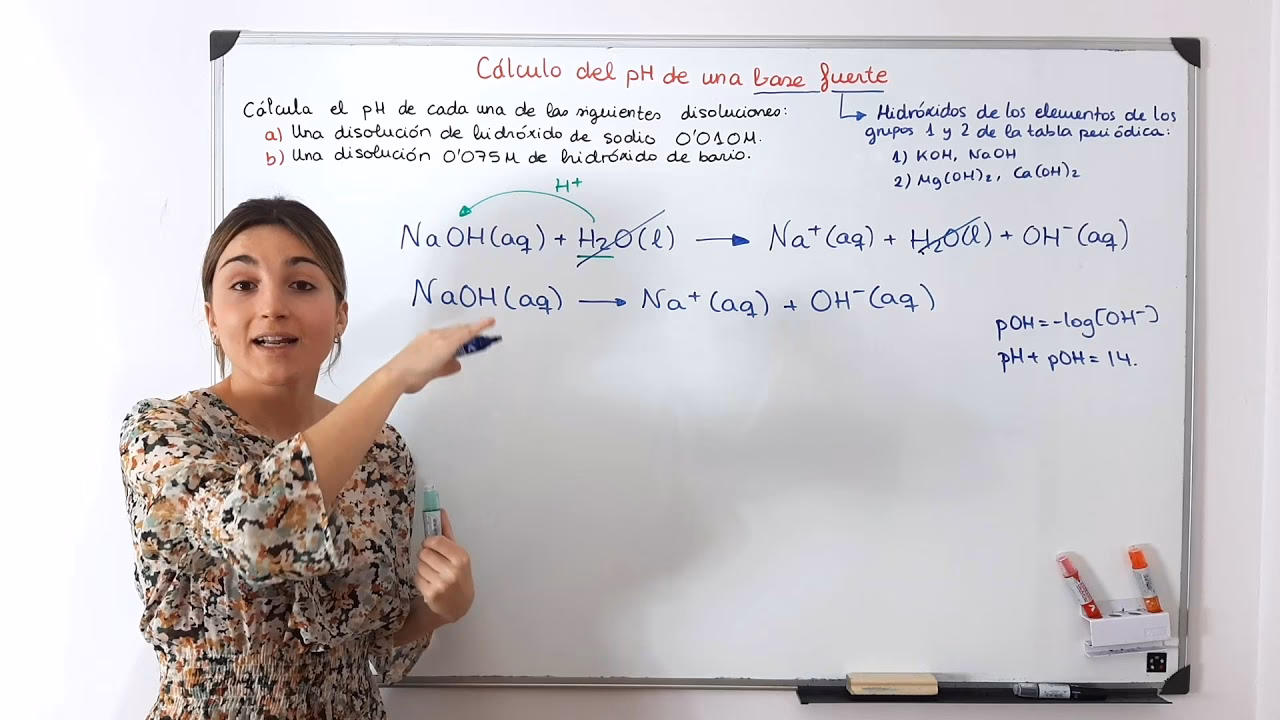 Cálculo del pH de una base fuerte
Calcula el pH de cada una de las siguientes disoluciones:
a) Una disolución de hidróxido de sodio 0'010M.
b) Una disolución 0'075M de hidróxido de bario.
Hidróxidos de los elementos de los
grupos 1 y 2 de la tabla periódica:
1) KOH, NaOH
2) Mg(OH)₂, Ca(OH)₂
H+
NaOH(aq) + H₂O(l) → Na⁺(aq) + H₂O(l) + OH⁻(aq)
NaOH(aq) → Na⁺(aq) + OH⁻(aq)
pOH=-log[OH⁻]
pH+ pOH= 14.